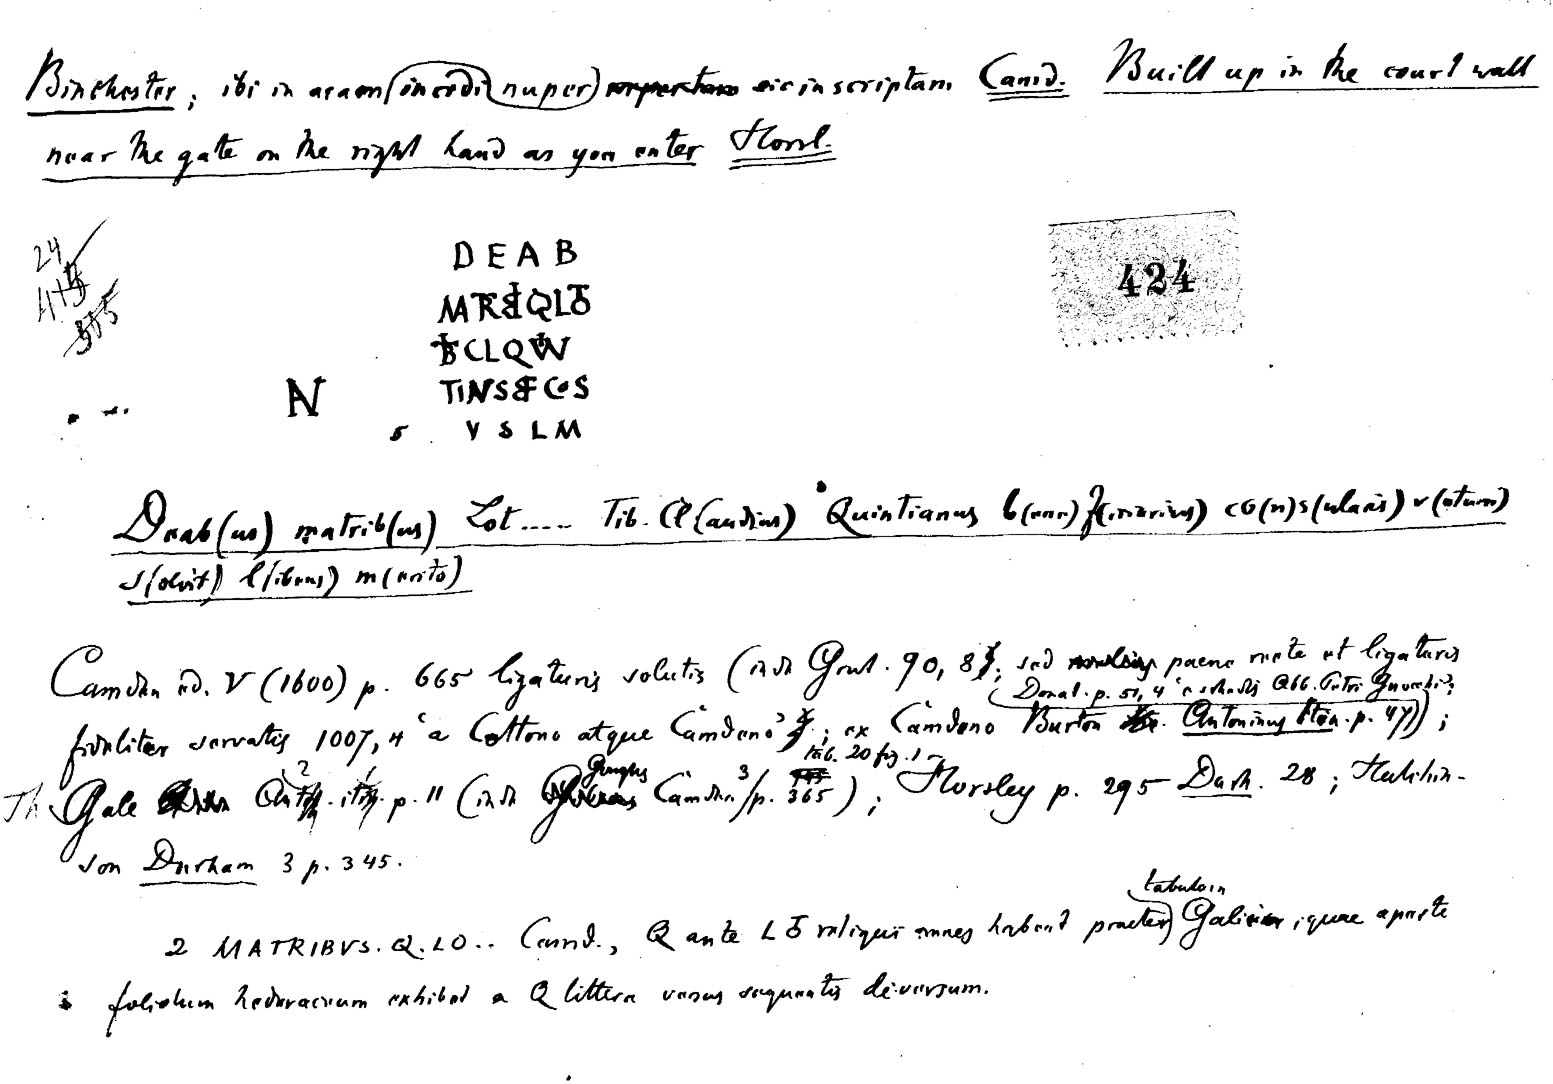 Binchester; ibi in aram (incidi nuper) sic inscriptam Camd. Built up in the court wall
near the gate on the right hand as you enter Horsl.
24
415
424
DEAB
MTRBQLOT
TBCLQVIN
N TINVSBFCOS
5 VSLM
Deab(us) matrib(us) Lot..... Tib. Cl(audius) Quintianus b(ene)f(iciarius) co(n)s(ularis) v(otum)
s(olvit) l(ibens) m(erito)
Camden ed. V (1600) p. 665 ligaturis solutis (inde Grut. 90, 8; sed paene recte et ligaturis
Donat. p. 51, 4 'e schedis Abb. Petri
fideliter servatis 1007, 4 'a Cottono atque Camdeno'; ex Camdeno Burton Antoninus itin. p. 47);
Th Gale p. 11 (inde Goughs Camden 3 / p. 365 tab. 20 fig. 1); Horsley p. 295 Durh. 28; Hutchin-
son Durham 3 p. 345.
2 MATRIBVS. Q. LO.. Camd., Q ante LOT reliqui omnes habent praeter tabulam, quae aperte
foliolum hederaceum exhibet a Q littera versus sequentis diversum.